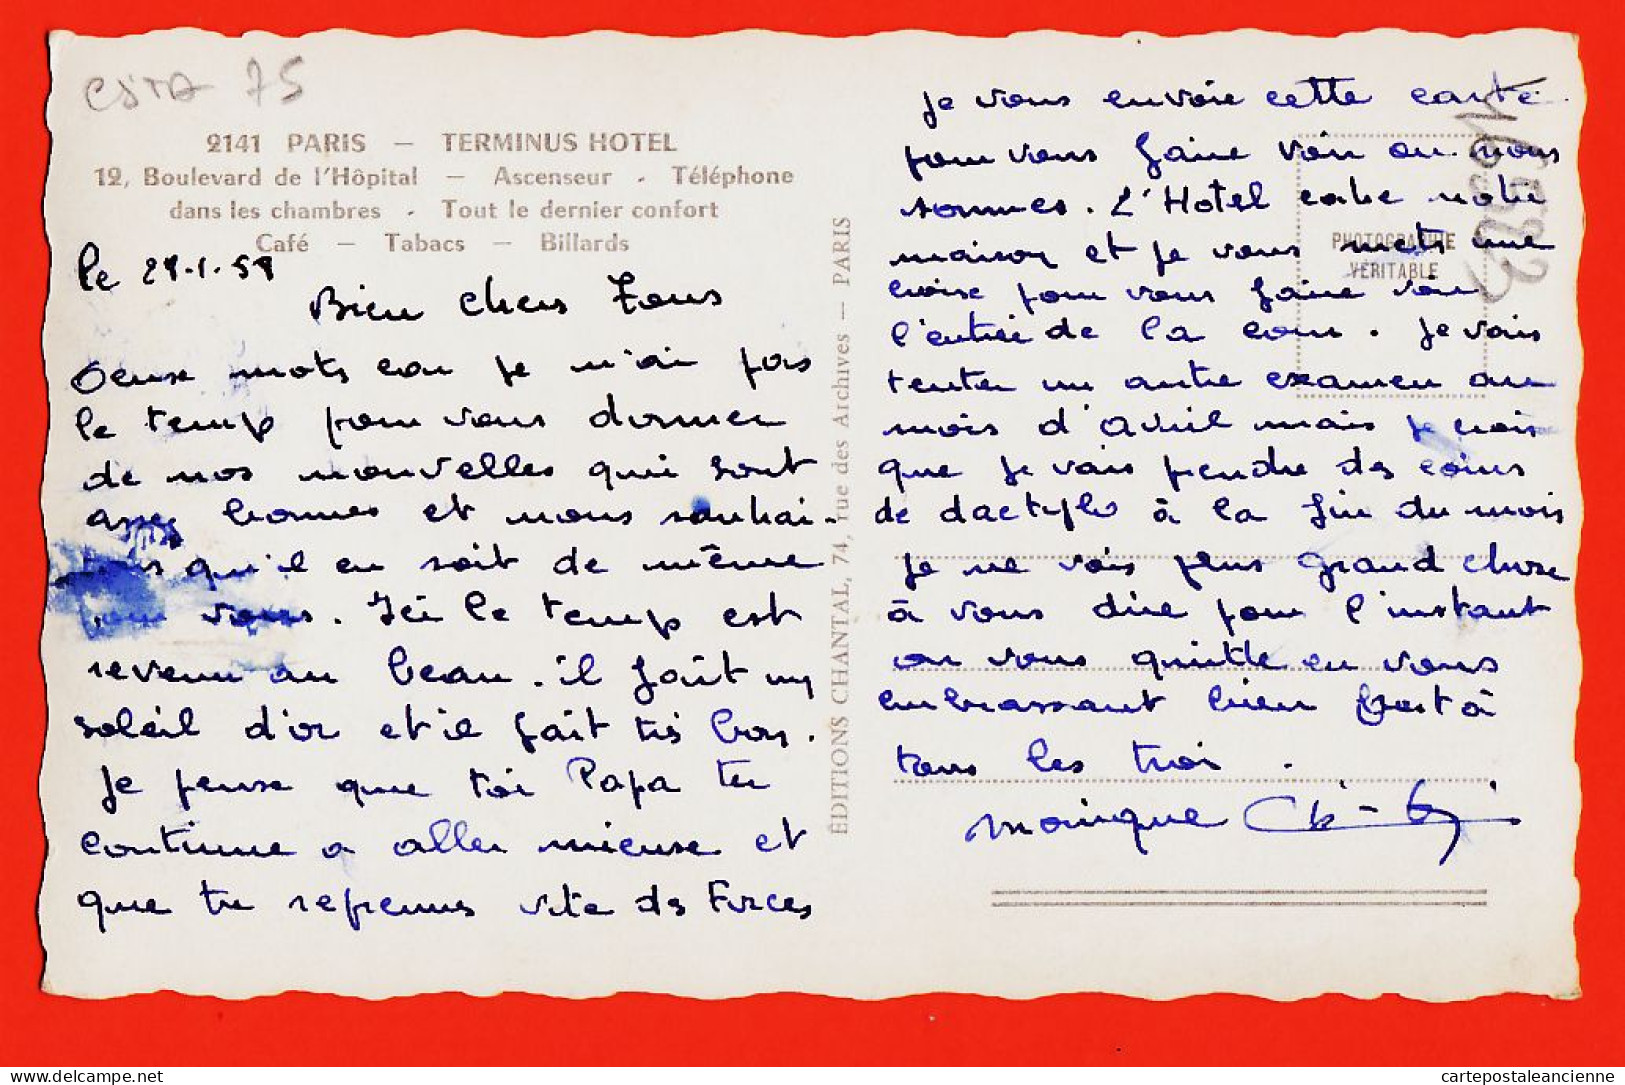 2141 PARIS — TERMINUS HOTEL
12, Boulevard de l'Hôpital — Ascenseur - Téléphone
dans les chambres - Tout le dernier confort
Café — Tabacs — Billards
le 29.1.59
Bien chers Tous
Deux mots car je n'ai pas
le temp pour vous donner
de nos nouvelles qui sont
assez bonnes et nous souhai-
tons qu'il en soit de même
pour vous. Ici le temp est
revenu au beau. il fait un
soleil d'or et il fait très bon.
Je pense que toi Papa tu
continue a aller mieux et
que tu reprennes vite des Forces
ÉDITIONS CHANTAL, 74, rue des Archives — PARIS
Je vous envoie cette carte
pour vous faire voir ou nous
sommes. L'Hotel cache notre
maison et je vous mets une
croix pour vous faire voir
l'entrée de la cour. Je vais
tenter un autre examen au
mois d'Avril mais je crois
que je vais prendre des cours
de dactylo à la fin du mois
Je ne vois plus grand chose
à vous dire pour l'instant
on vous quitte en vous
embrassant bien fort à
tous les troi.
Monique
PHOTOGRAPHIE
VÉRITABLE
75
delcampe.net
cartepostaleancienne